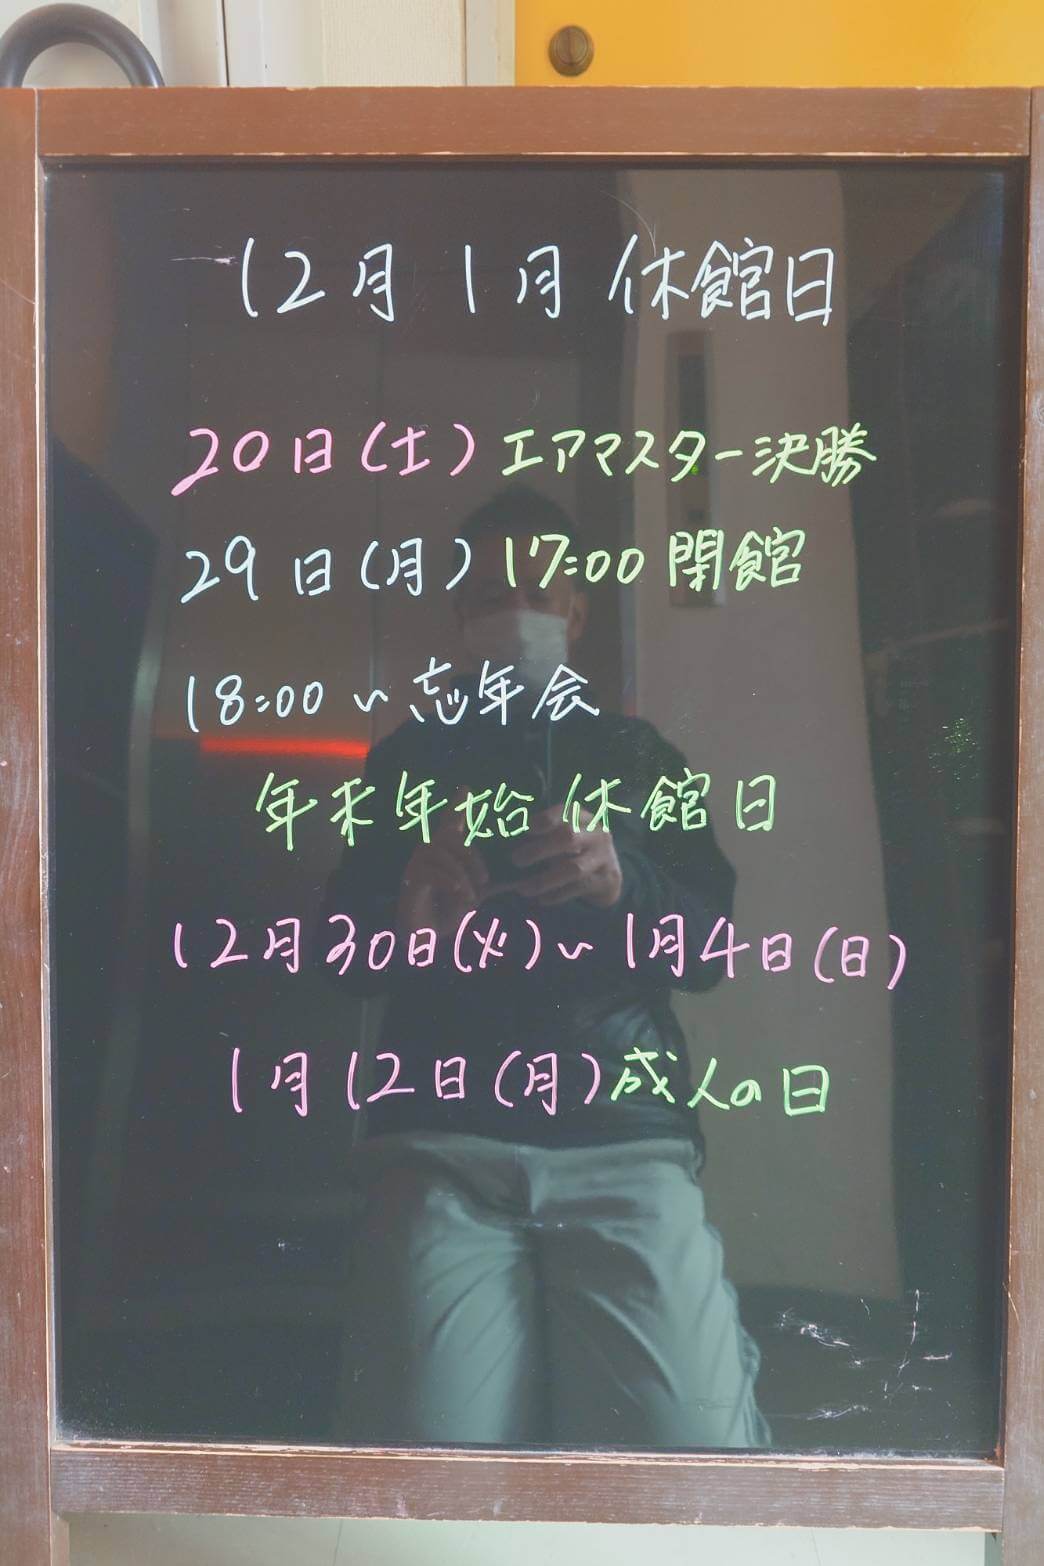 12月 1月 休館日
20日(土)エアマスター決勝
29日(月)17:00 閉館
18:00〜忘年会
年末年始 休館日
12月30日(火)〜1月4日(日)
1月12日(月)成人の日